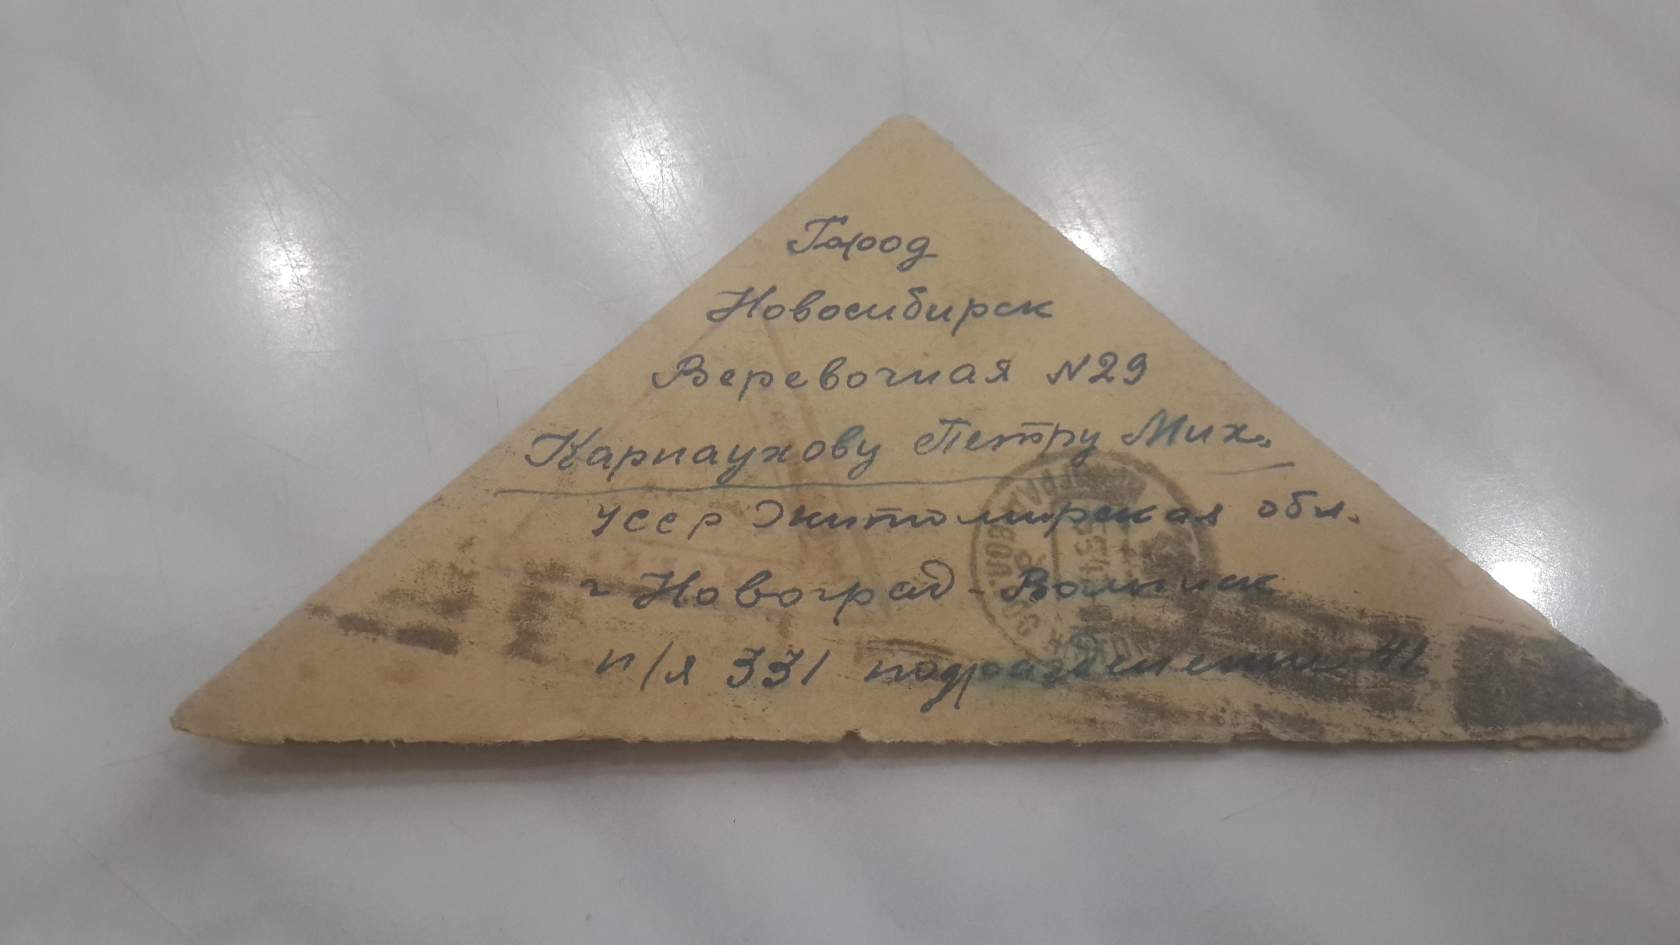 Город
Новосибирск
Веревочная N29
Карпаухову Петру Мих.
УССР Житомирская обл.
г Новоград-Волынск
п/я 331 подразделение 41